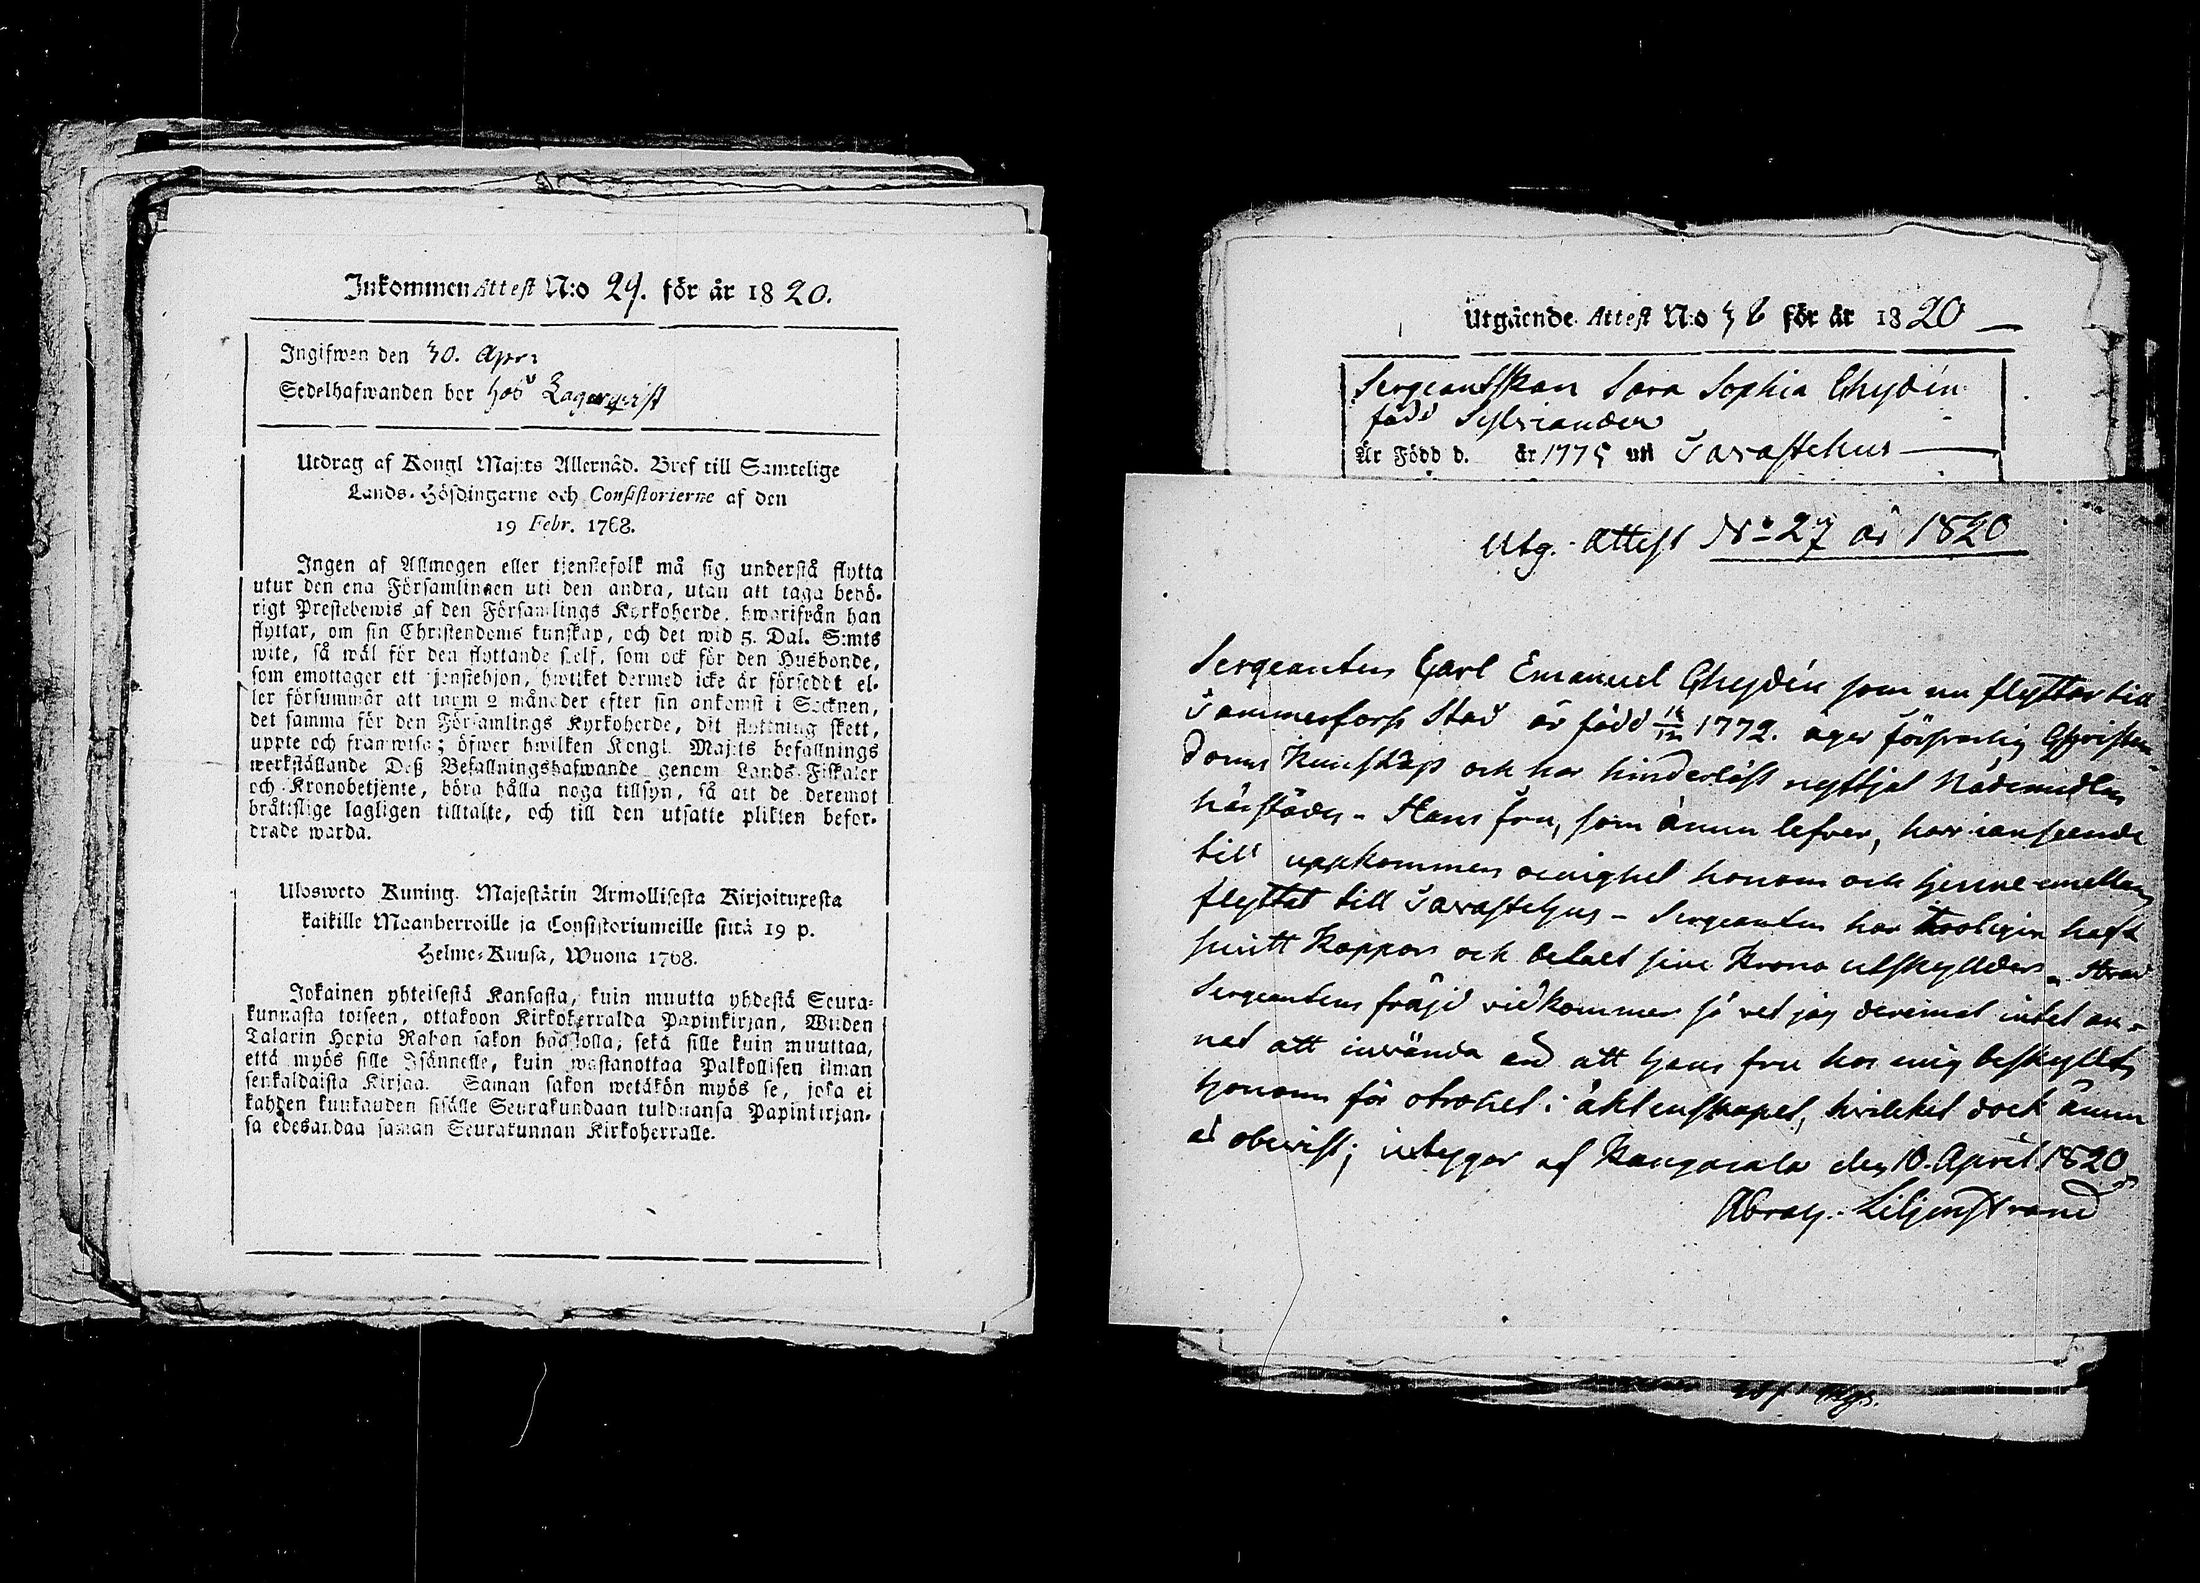 Inkommen Attest N:o 29. för år 1820.
Ingifwen den 30. Apr:
Sedelhafwanden bor hos Lagerqvist
Utdrag af Kongl Maj:ts Allernåd. Bref till Samtelige
Lands-Höfdingarne och Consistorierne af den
19 Febr. 1768.
Ingen af Allmogen eller tjenstefolk må sig understå flytta
utur den ena Församlingen uti den andra, utan att taga behö-
rigt Prestebewis af den Församlings Kyrkoherde, hwarifrån han
flyttar, om sin Christendoms kunskap, och det wid 5. Dal. S:mts
wite, så wäl för den flyttande sielf, som ock för den Husbonde,
som emottager ett tjenstehjon, hwilket dermed icke är förseddt el-
ler försummar att inom 2 månader efter sin ankomst i Socknen,
det samma för den Församlings Kyrkoherde, dit flyttning skett,
uppte och framwisa; öfwer hwilken Kongl. Maj:ts befallnings
werkställande Deß Befallningshafwande genom Lands-Fiskaler
och Kronobetjente, böra hålla noga tillsyn, så att de deremot
bråttslige lagligen tilltalte, och till den utsatte plikten befor-
drade warda.
Ulosweto Kuning. Majestätin Armollisesta Kirjoituxesta
kaikille Maanherroille ja Consistoriumeille siitä 19 p.
Helme-Kuusa, Wuona 1768.
Jokainen yhteisestä Kansasta, kuin muutta yhdestä Seura-
kunnasta toiseen, ottakoon Kirkoherralda Papinkirjan, Wiiden
Talarin Hopia Rahan sakon haastolla, sekä sille kuin muuttaa,
että myös sille Isännelle, kuin wastanottaa Palkollisen ilman
senkaldaista Kirjaa. Saman sakon wetäkön myös se, joka ei
kahden kuukauden sisälle Seurakundaan tulduansa Papinkirjan-
sa edesandaa saman Seurakunnan Kirkoherralle.
Utgående Attest N:o 36 för år 1820
Sergeantskan Sara Sophia Chydén
född Sylviander
Är Född d. år 1775 uti Tavastehus
Utg. Attest No 27 år 1820
Sergeanten Carl Emanuel Chydén som nu flyttar till
Tammerfors Stad är född 16/12 1772. äger försvarlig Christen-
doms Kunskap och har hinderlöst nyttjat Nådemedlen
härstädes - Hans fru, som ännu lefver, har i anseende
till uppkommen oenighet honom och henne emellan
flyttat till Tavastehus - Sergeanten har troligen haft
smitt Koppor och betalt sine Krono utskylder - Hvad
Sergeantens fräjd vidkommer så vet jag deremot intet an-
nat att invända än att hans fru hos mig beskyllt
honom för otrohet i äktenskapet, hvilket dock ännu
är obevist; intygar af Kangasala den 10. April 1820
Abrah. Liljenstrand